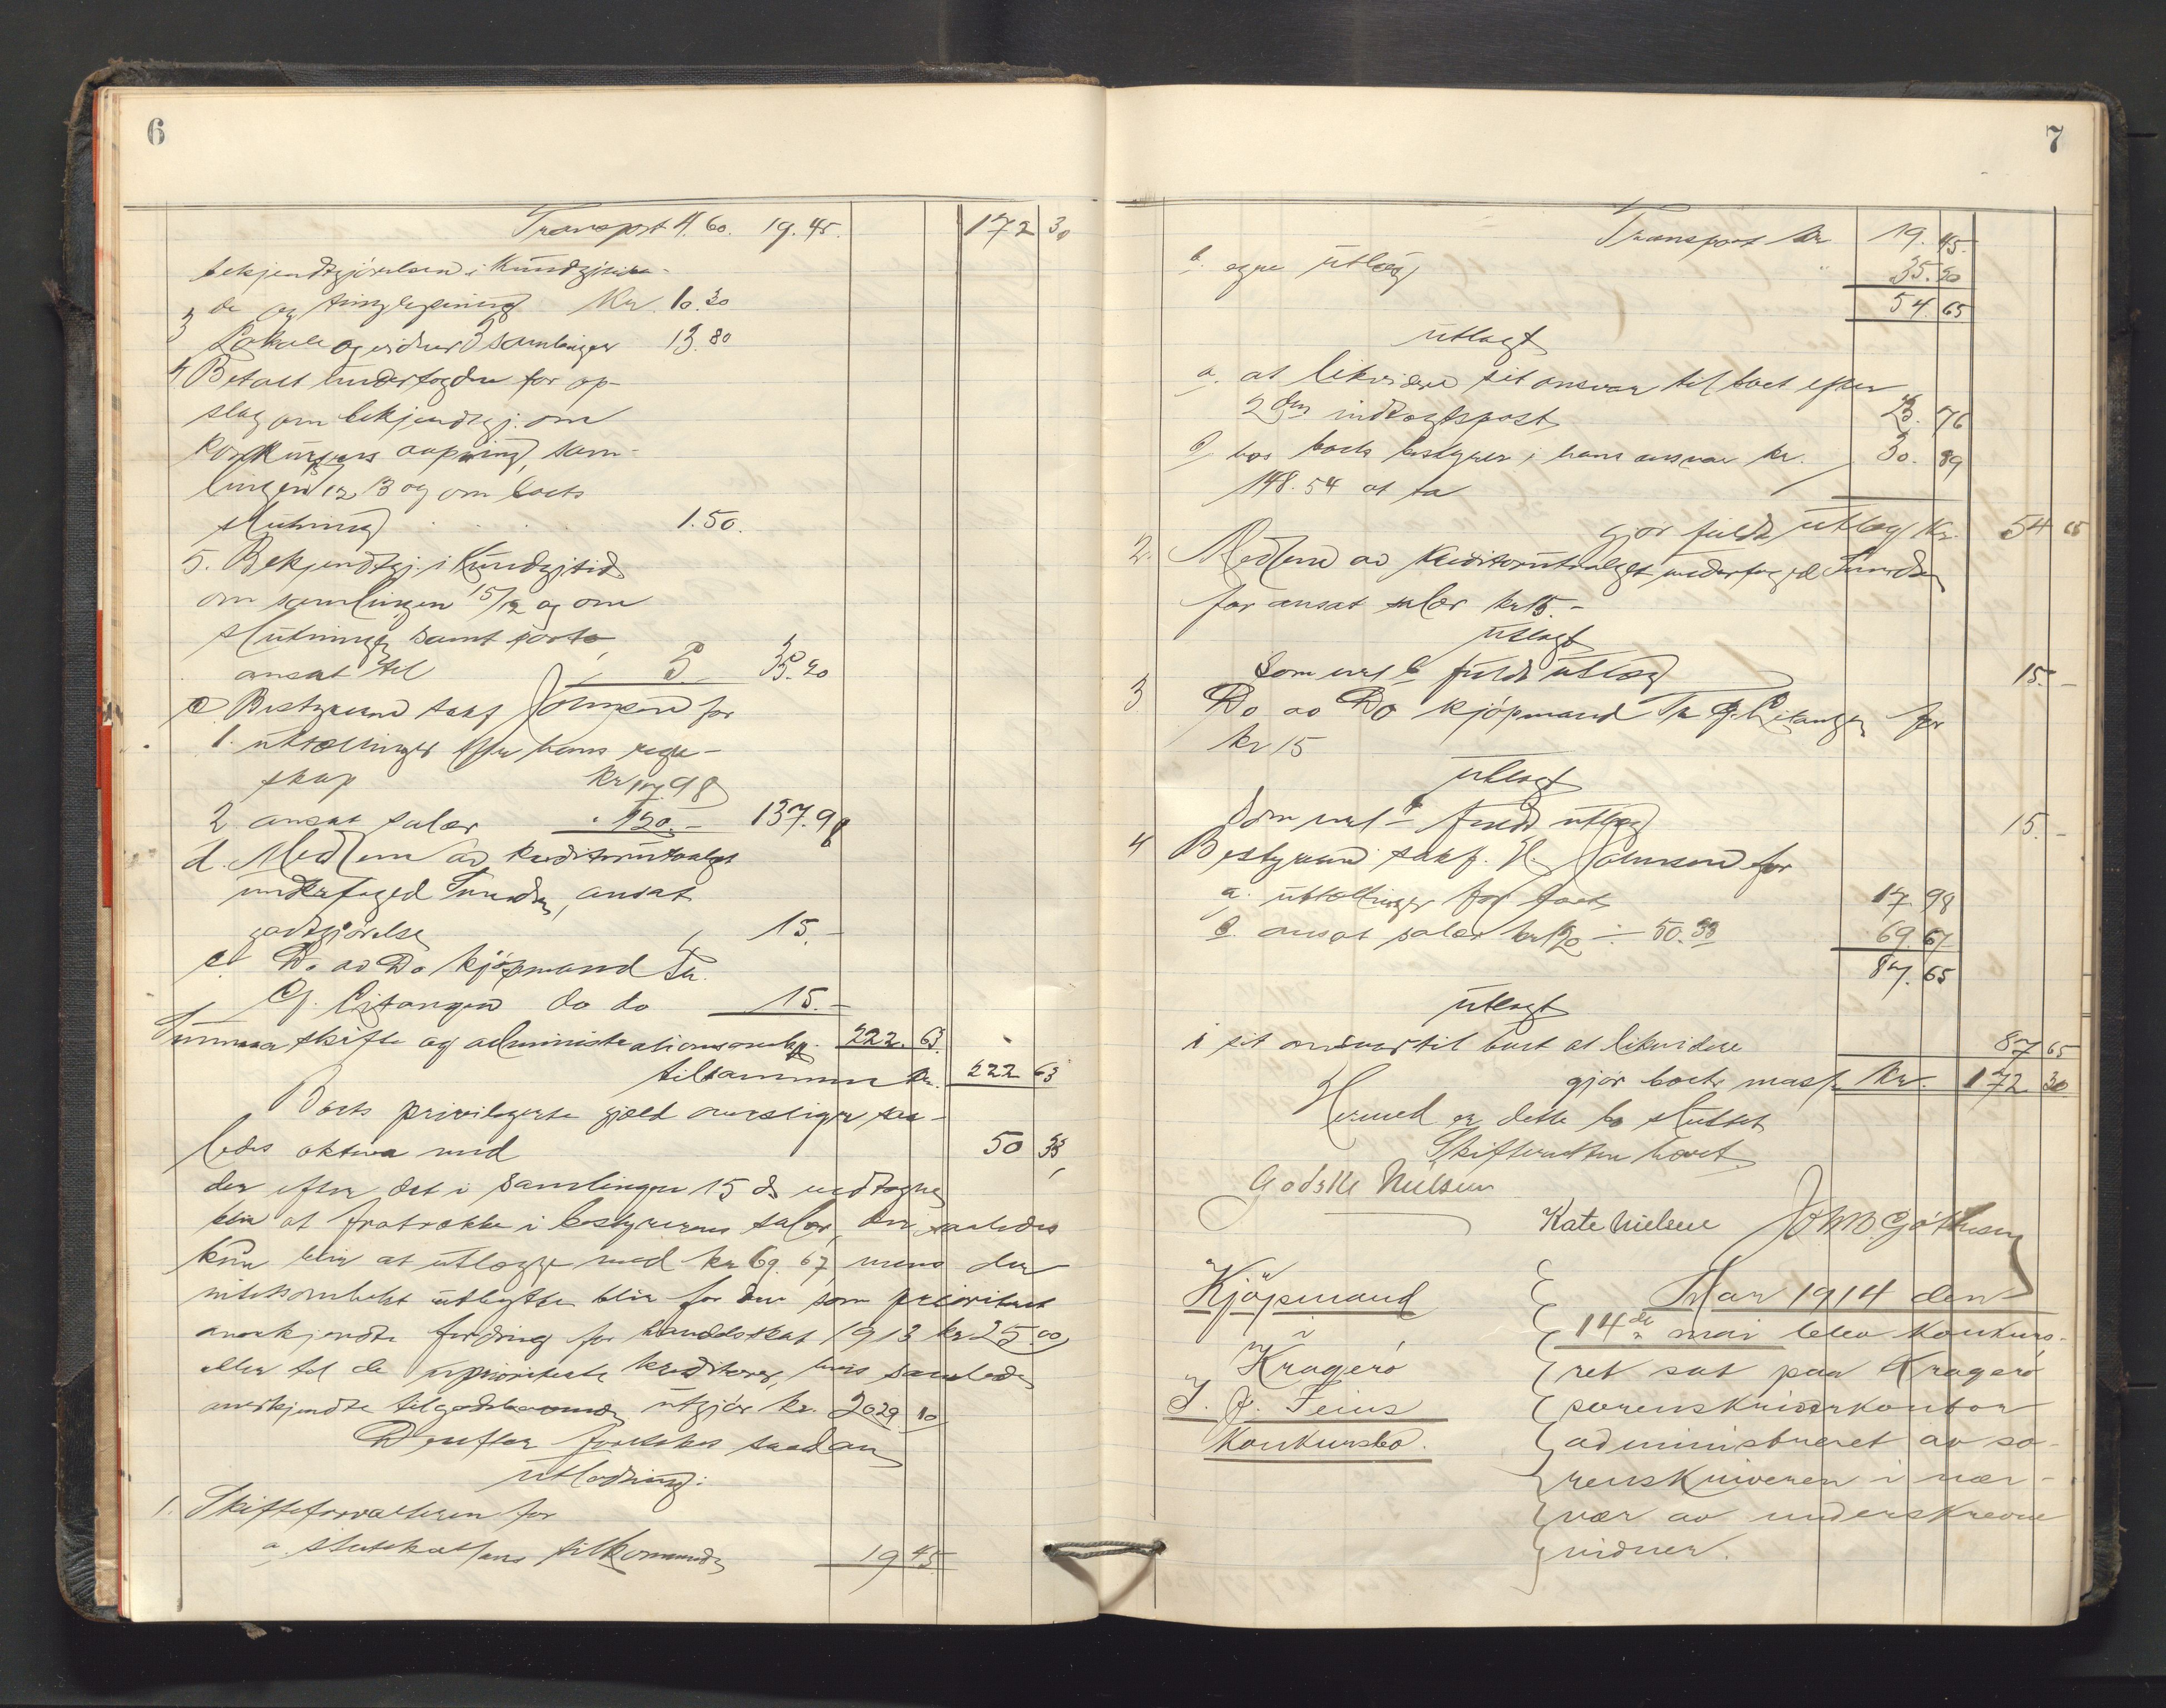 6
Transport 4.60. 19.45. 172 30
bekjendtgjörelsen i Kundgjörelse-
de og tinglysning Kr. 10.30
3 Lokale og vidner 3 samlinger 13.80
4 Betalt underfogden for op-
slag om bekjendtgj. om
konkursens aapning, sam-
lingen 15/12 13 og om boets
slutning 1.50.
5. Bekjendtgj. i Kundgjtid
om samlingen 15/12 og om
slutningen samt porto
ansat til 5. 35.20
c Bestyreren sakf Johnsen for
1. utbetalinger efter hans regn-
skap Kr 17.98
2. ansat salær 120.- 137.98
d. Medlem av kreditorutvalget
underfoged Tveden, ansat
godtgjörelse 15.-
e. Do av Do kjöpmand Tr.
G. Eitangen do do 15.-
Summa skifte og administrationsomk. 222.63.
tilsammen kr. 222 63
Boets privilegerte gjæld overstiger saa-
ledes aktiva med 50 33
der efter det i samlingen 15 ds vedtagne
blir at fratrække i bestyrerens salær, der saaledes
kun blir at utlægge med kr 69.67, mens der
intetsomhelst utbytte blir for den som prioritert
anerkjendte fordring for handelsskat 1913 kr 25.00
eller til de uprioriterte kreditorer, hvis samlede
anerkjendte tilgodehavende utgjör kr. 2029 10
Derefter foretokes saadan
utlodning:
1. Skifteforvalteren for
a. statskassens tilkommende 19 45
7
Transport kr 19.45
b. egne utlæg " 35.20
54 65
utlagt
a. at likvidere sit ansvar til boet efter
2den indtægtspost 23. 76
b. hos boets bestyrer i hans ansvar kr. 30. 89
148.54 at ta
gjör fuldt utlæg Kr. 54 65
2. Medlem av kreditorutvalget underfoged Tveden
for ansat salær kr 15.-
utlagt
som ved b fuldt utlæg 15.-
3 Do av Do kjöpmand Tr G. Eitangen for
kr 15
utlagt
som ved fuldt utlæg 15.-
4 Bestyreren sakf. H. Johnsen for
a. utbetalinger for boet 17. 98
b. ansat salær kr 120 ÷ 50.33 69 67
87. 65
utlagt
i sit ansvar til boet at likvidere 87 65
gjör boets masse Kr. 172 30
Hermed er dette bo sluttet
Skifteretten hævet
Godske Nielsen
Kate Nielsen Joh M. Göthesen
Kjöpmand
Kragerö
J. J. Feius
Konkursbo.
Aar 1914 den
14de mai blev konkurs-
ret sat paa Kragerö
sorenskriverkontor
administreret av so-
renskriveren i nær-
vær av underskrevne
vidner.